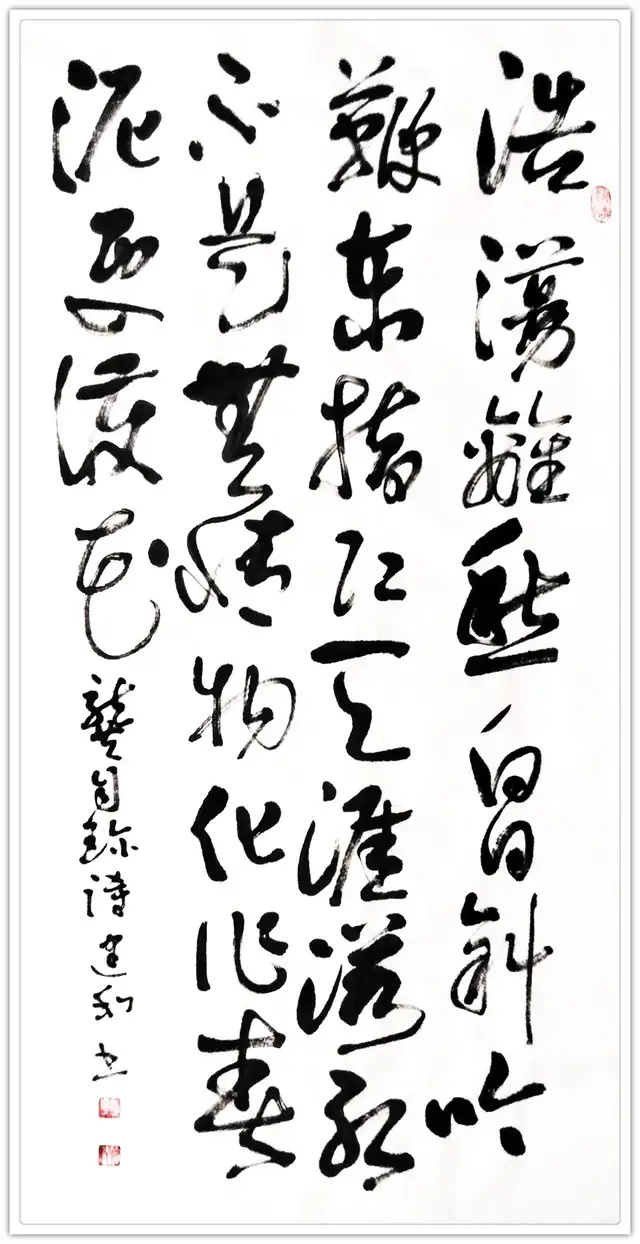 浩蕩離愁白日斜吟
鞭東指即天涯落紅
不是無情物化作春
泥更護花
龔自珍詩建利书